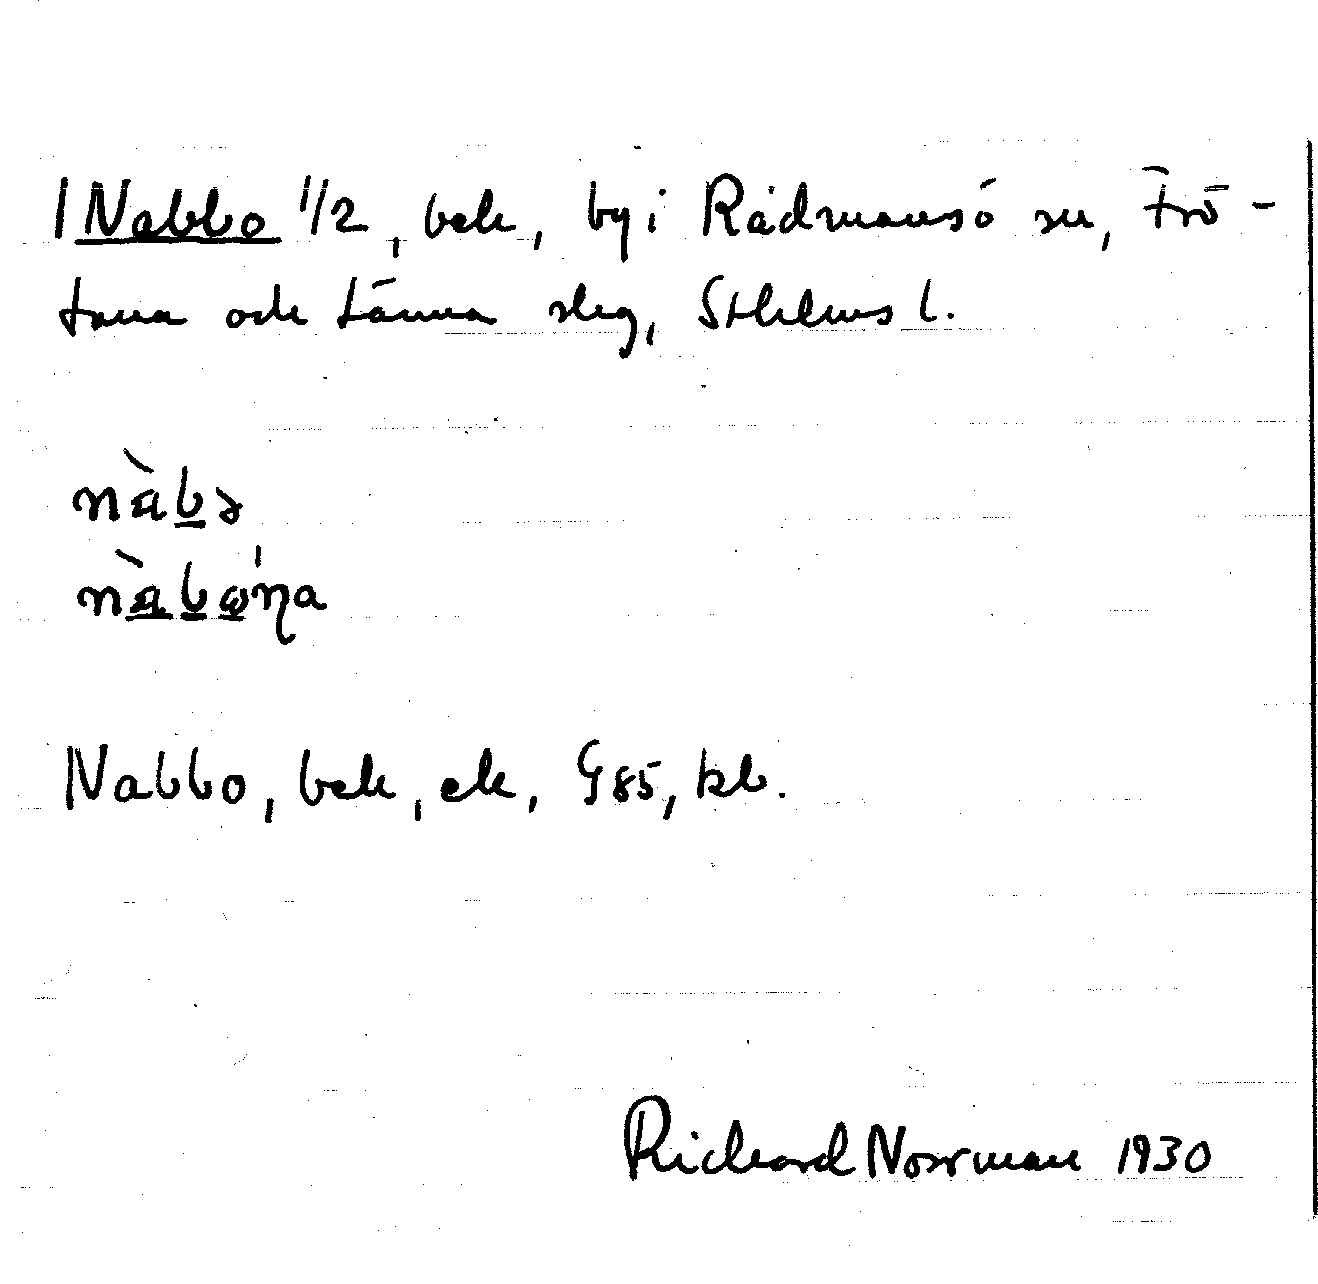 Nabbo 1/2, beb, by i Rådmansö sn, Frö-
tuna och Länna slg, Sthlms l.
nàbə
Nabbo, beb, ek, G85, kb.
Richard Norrman 1930